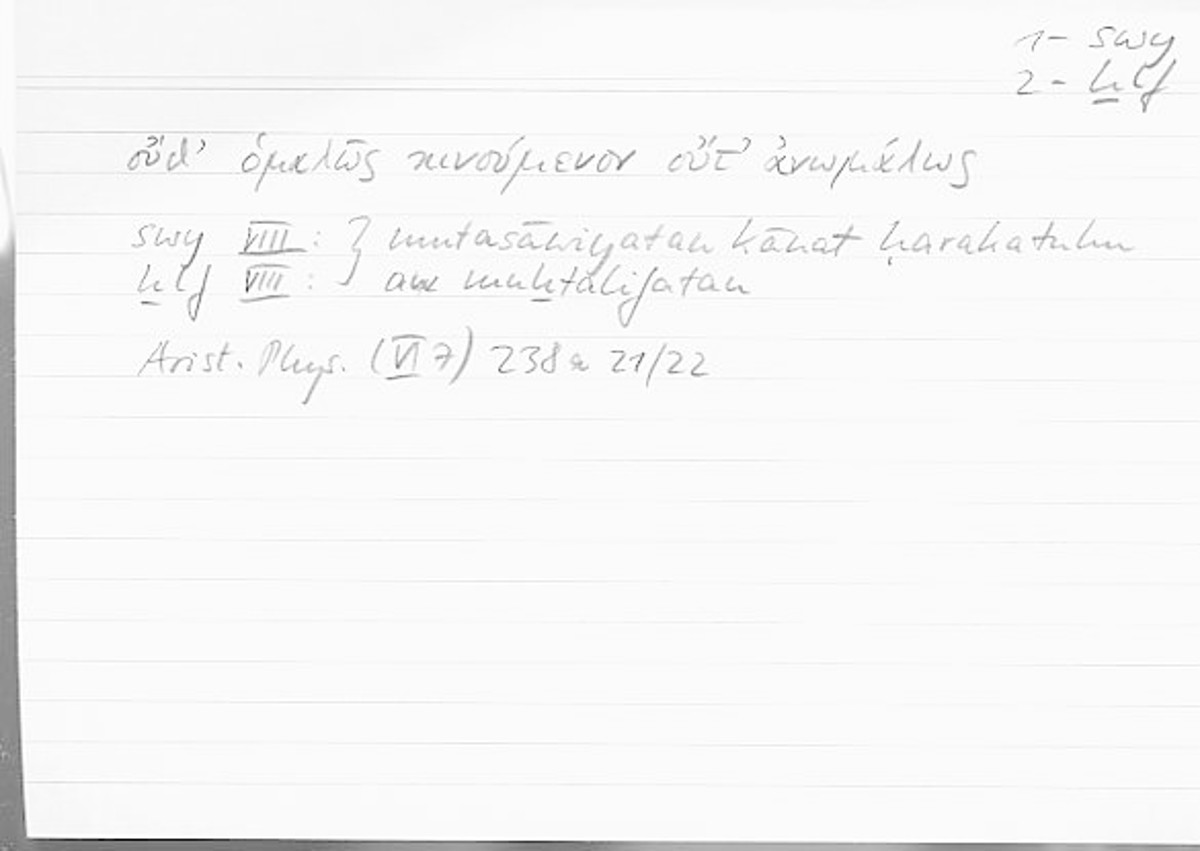 1- swy
2- ḫlf
οὔδ' ὁμαλῶς κινούμενον οὔτ' ἀνωμάλως
swy VIII : } mutasāwiyatan kānat ḥarakatuhu
ḫlf VIII : } aw muḫtalifatan
Arist. Phys. (VI 7) 238a 21/22